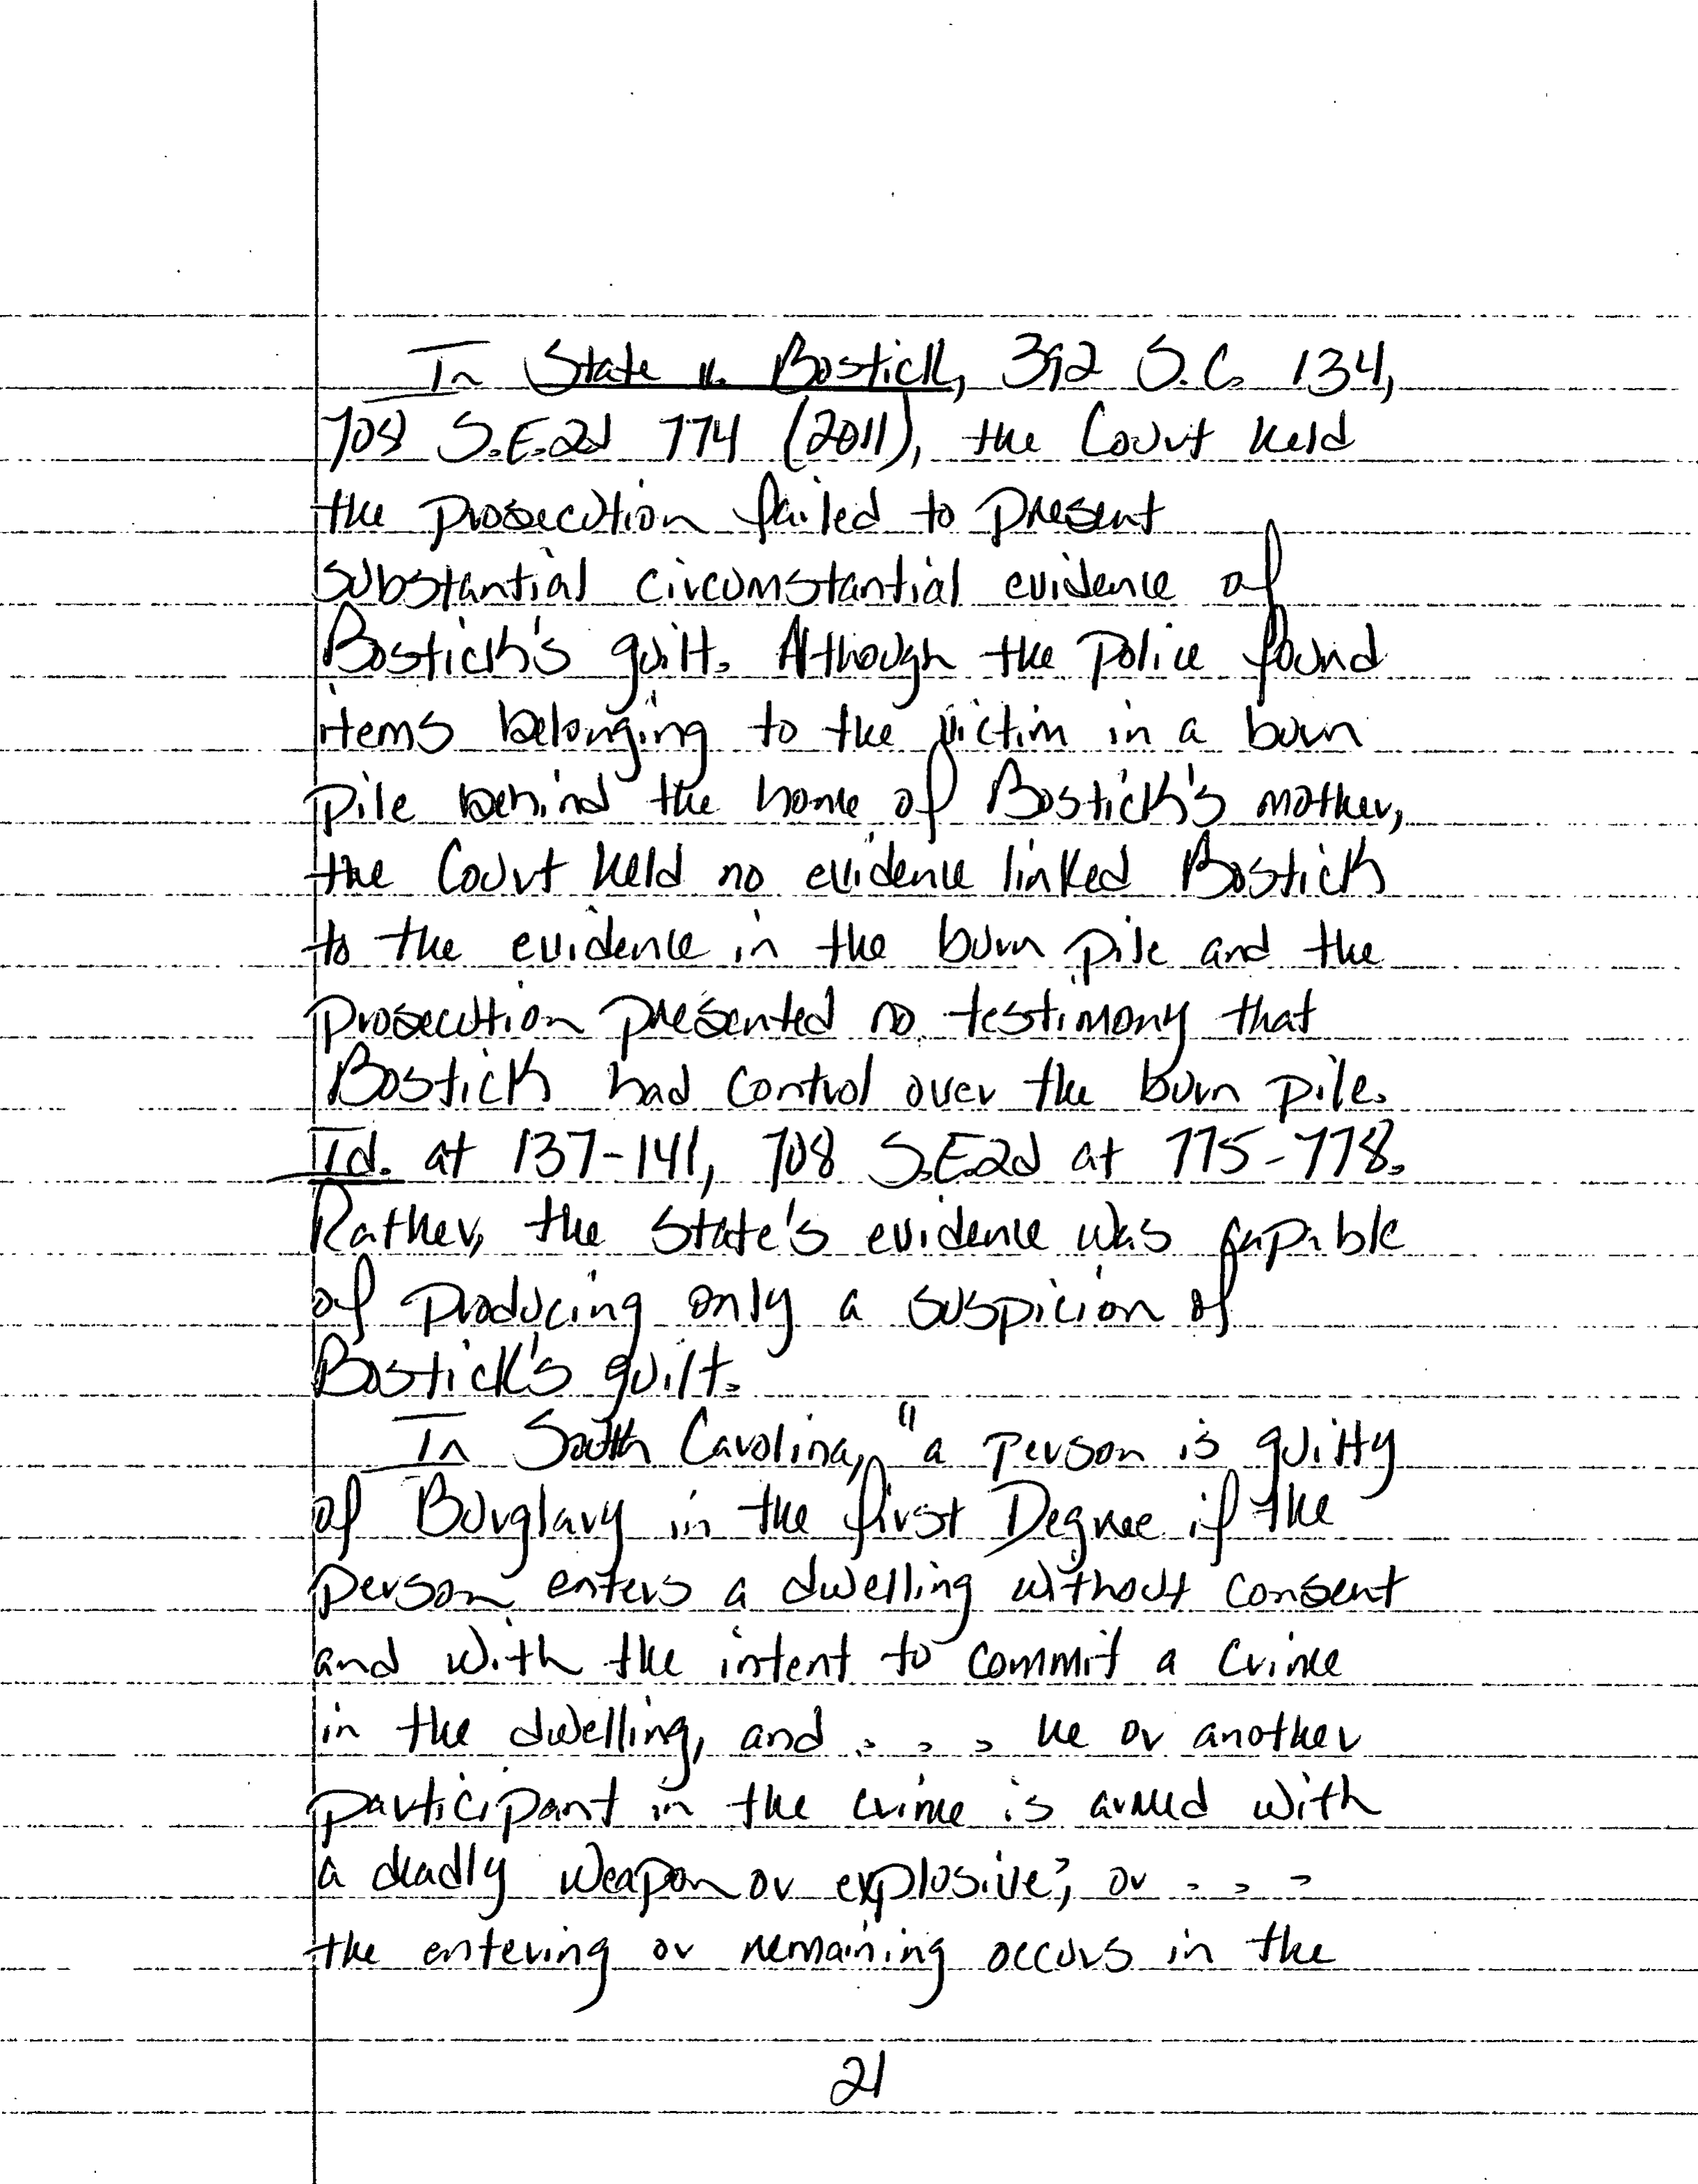 In State v. Bostick, 392 S.C. 134,
708 S.E.2d 774 (2011), the Court held
the prosecution failed to present
substantial circumstantial evidence of
Bostick's guilt. Although the police found
items belonging to the victim in a burn
pile behind the home of Bostick's mother,
the Court held no evidence linked Bostick
to the evidence in the burn pile and the
prosecution presented no testimony that
Bostick had control over the burn pile.
Id. at 137-141, 708 S.E.2d at 775-778.
Rather, the State's evidence was capable
of producing only a suspicion of
Bostick's guilt.
In South Carolina, "a person is guilty
of Burglary in the first Degree if the
person enters a dwelling without consent
and with the intent to commit a crime
in the dwelling, and . . . he or another
participant in the crime is armed with
a deadly weapon or explosive; or . . .
the entering or remaining occurs in the
21